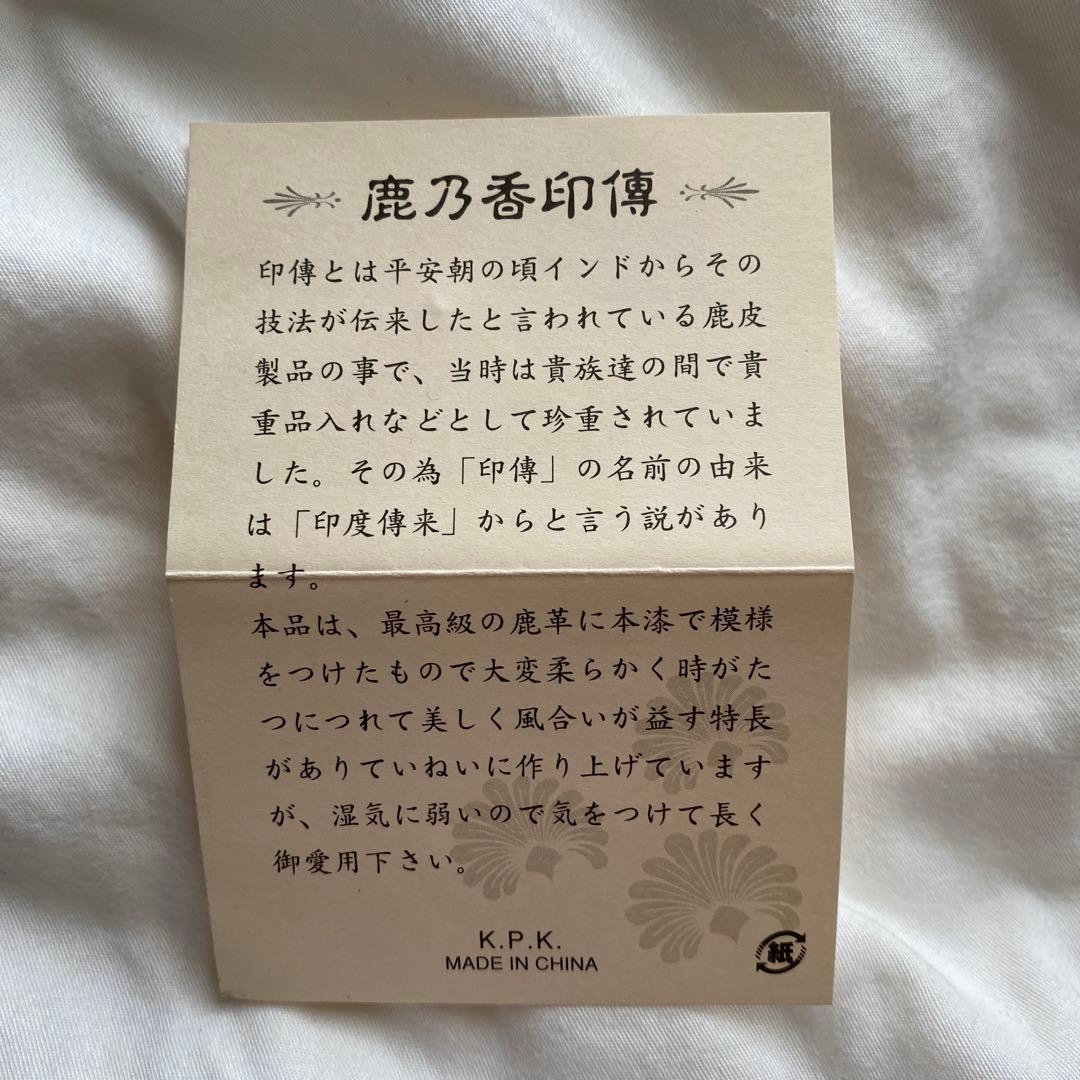 鹿乃香印傳
印傳とは平安朝の頃インドからその
技法が伝来したと言われている鹿皮
製品の事で、当時は貴族達の間で貴
重品入れなどとして珍重されていま
した。その為「印傳」の名前の由来
は「印度傳来」からと言う説があり
ます。
本品は、最高級の鹿革に本漆で模様
をつけたもので大変柔らかく時がた
つにつれて美しく風合いが益す特長
がありていねいに作り上げています
が、湿気に弱いので気をつけて長く
御愛用下さい。
K.P.K.
MADE IN CHINA
紙